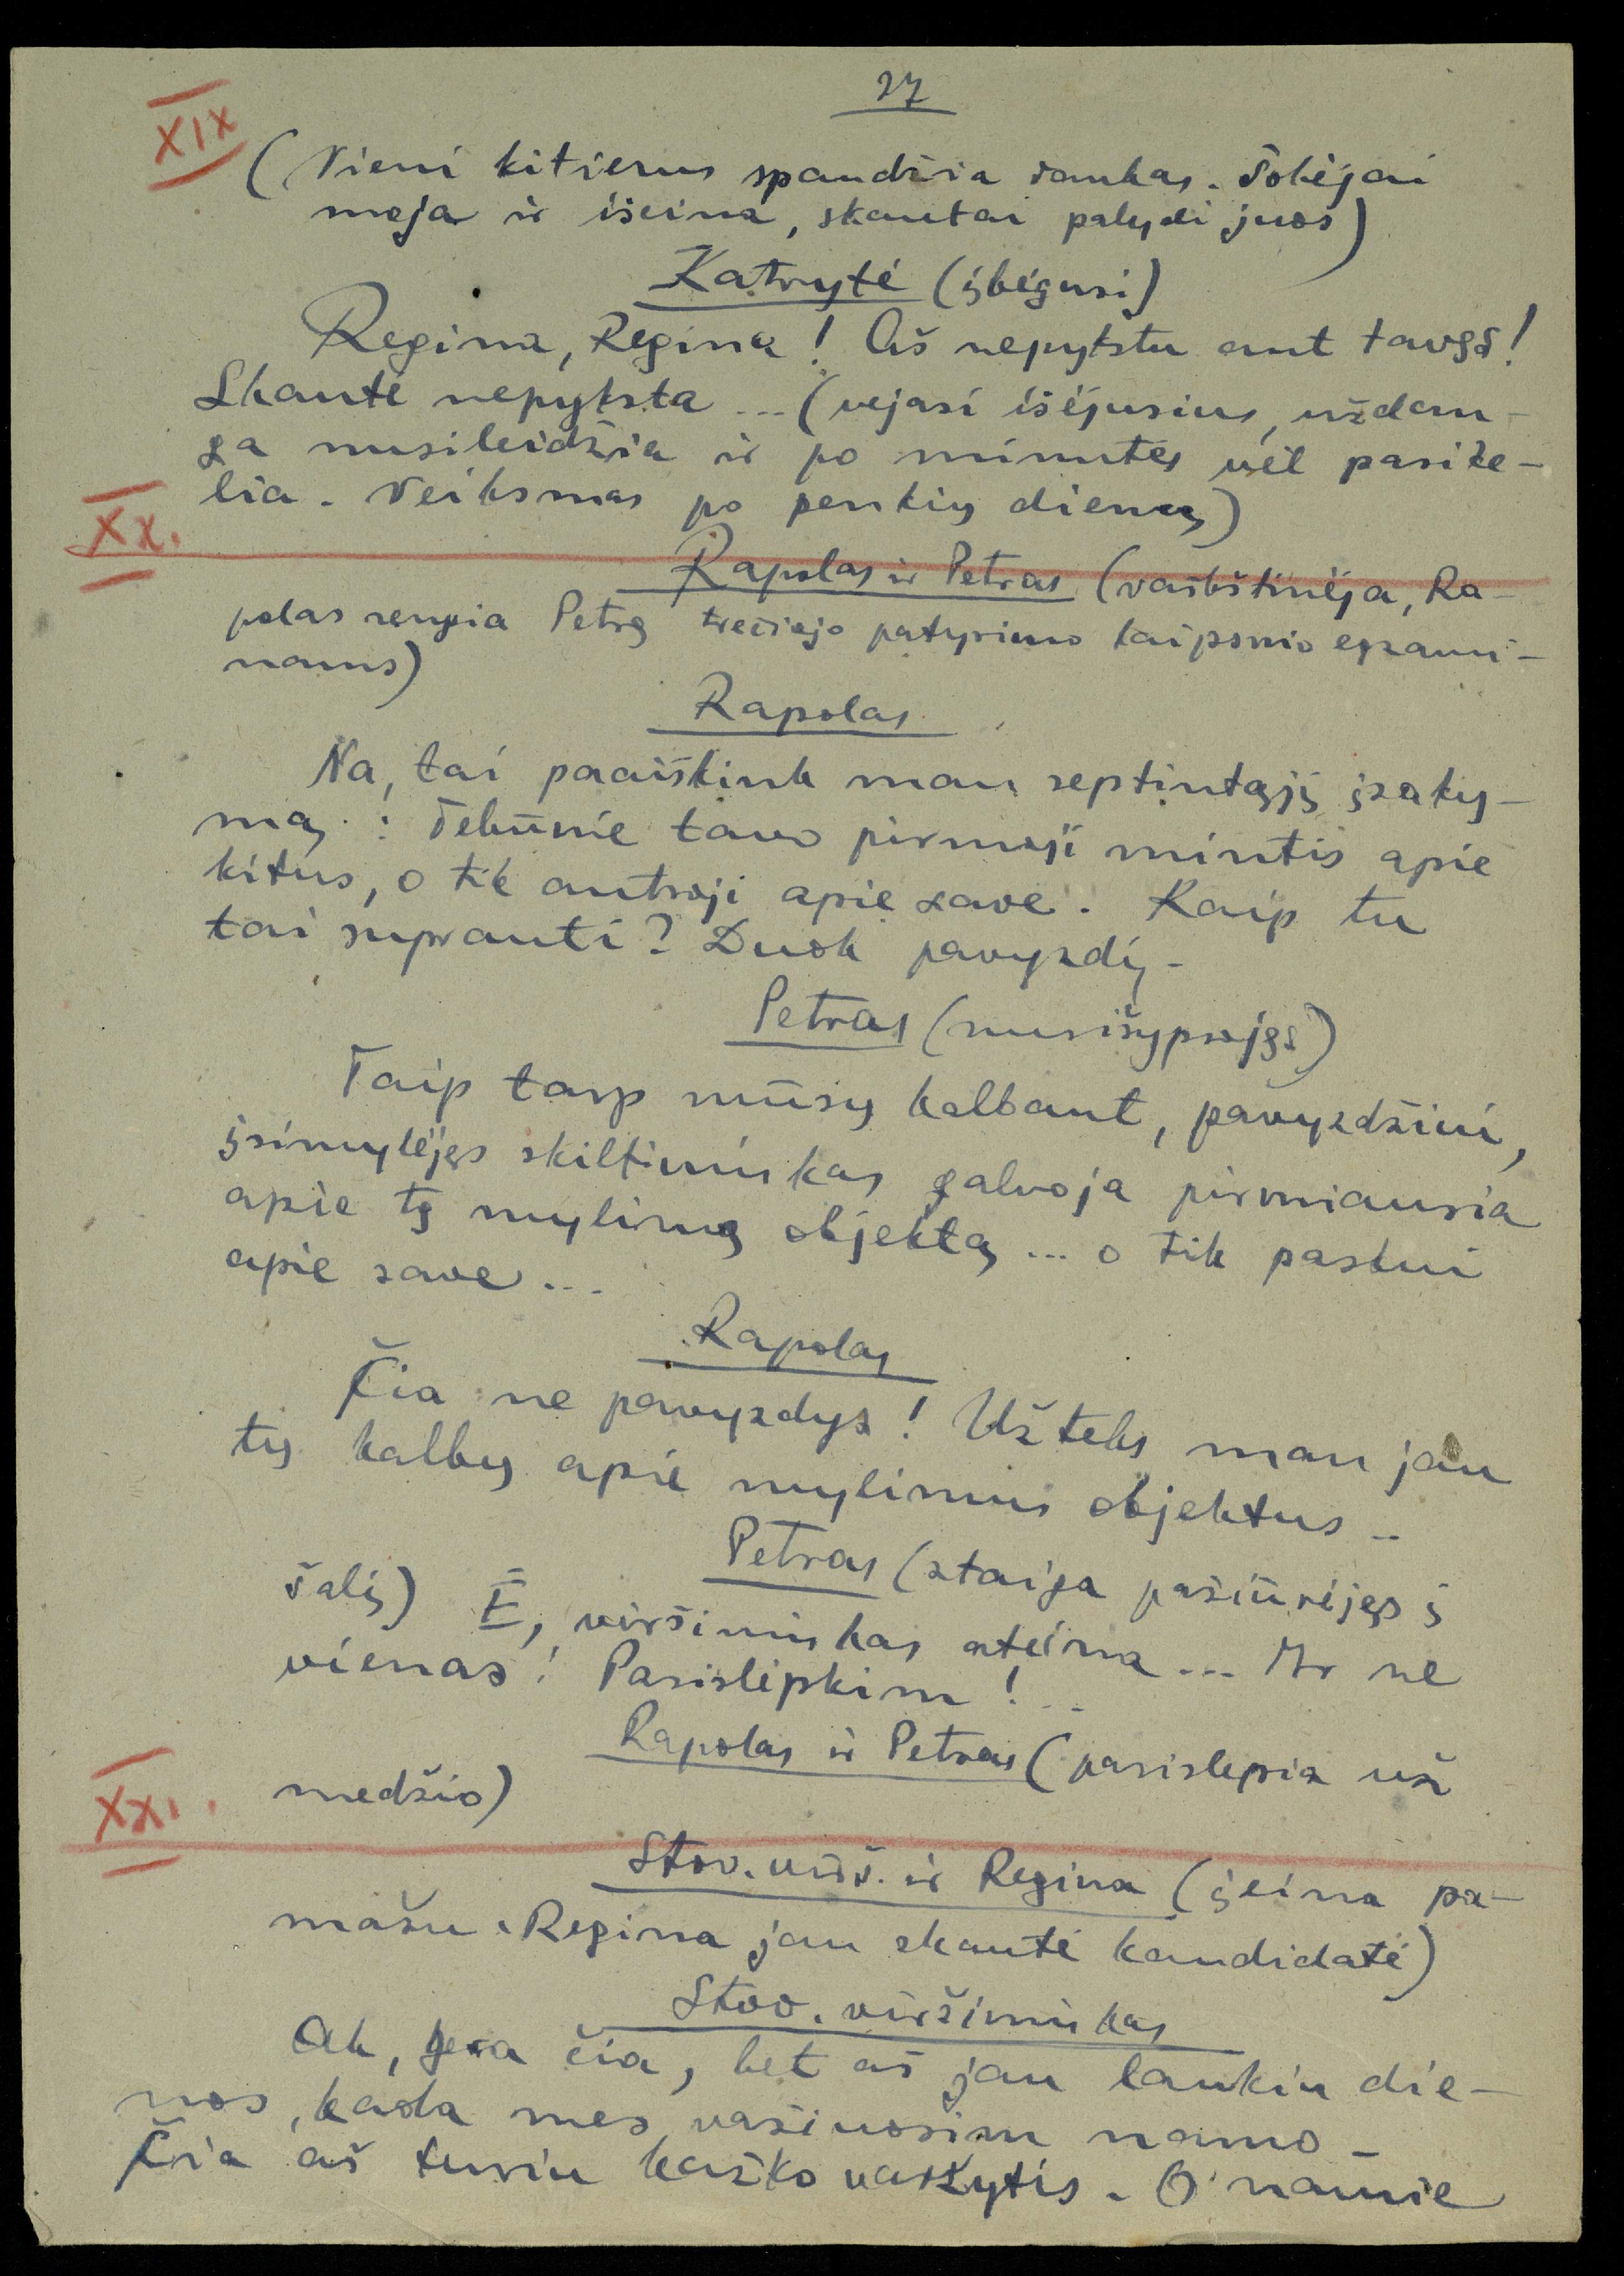 27
XIX
(Vieni kitiems spaudžia rankas. Tolėjai
moja ir išeina, skautai palydi juos)
Katrytė (įbėgusi)
Regina, Regina! Aš nepykstu ant tavęs!
Skautė nepyksta ... (vejasi išėjusius, uždan-
ga nusileidžia ir po minutės vėl pasike-
lia. Veiksmas po penkių dienų)
XX.
Rapolas ir Petras (vaikštinėja, Ra-
polas rengia Petrą trečiojo patyrimo laipsnio egzami-
nams)
Rapolas
Na, tai paaiškink man septintąjį įsaky-
mą: Tebūnie tavo pirmoji mintis apie
kitus, o tik antroji apie save. Kaip tu
tai supranti? Duok pavyzdį.
Petras (nusišypsojęs)
Taip tarp mūsų kalbant, pavyzdžiui,
įsimylėjęs skiltininkas galvoja pirmiausia
apie tą mylimą objektą ... o tik paskui
apie save...
Rapolas
Čia ne pavyzdys! Užteks man jau
tų kalbų apie mylimus objektus ..
Petras (staiga pažiūrėjęs į
šalį) Ė, viršininkas ateina ... Ir ne
vienas! Pasislėpkim! ..
Rapolas ir Petras (pasislepia už
medžio)
XXI.
Stov. virš. ir Regina (įeina pa-
mažu. Regina jau skautė kandidatė)
Stov. viršininkas
Ak, gera čia, bet aš jau laukiu die-
nos, kada mes važiuosim namo.
Čia aš turiu kažko varžytis. O namie